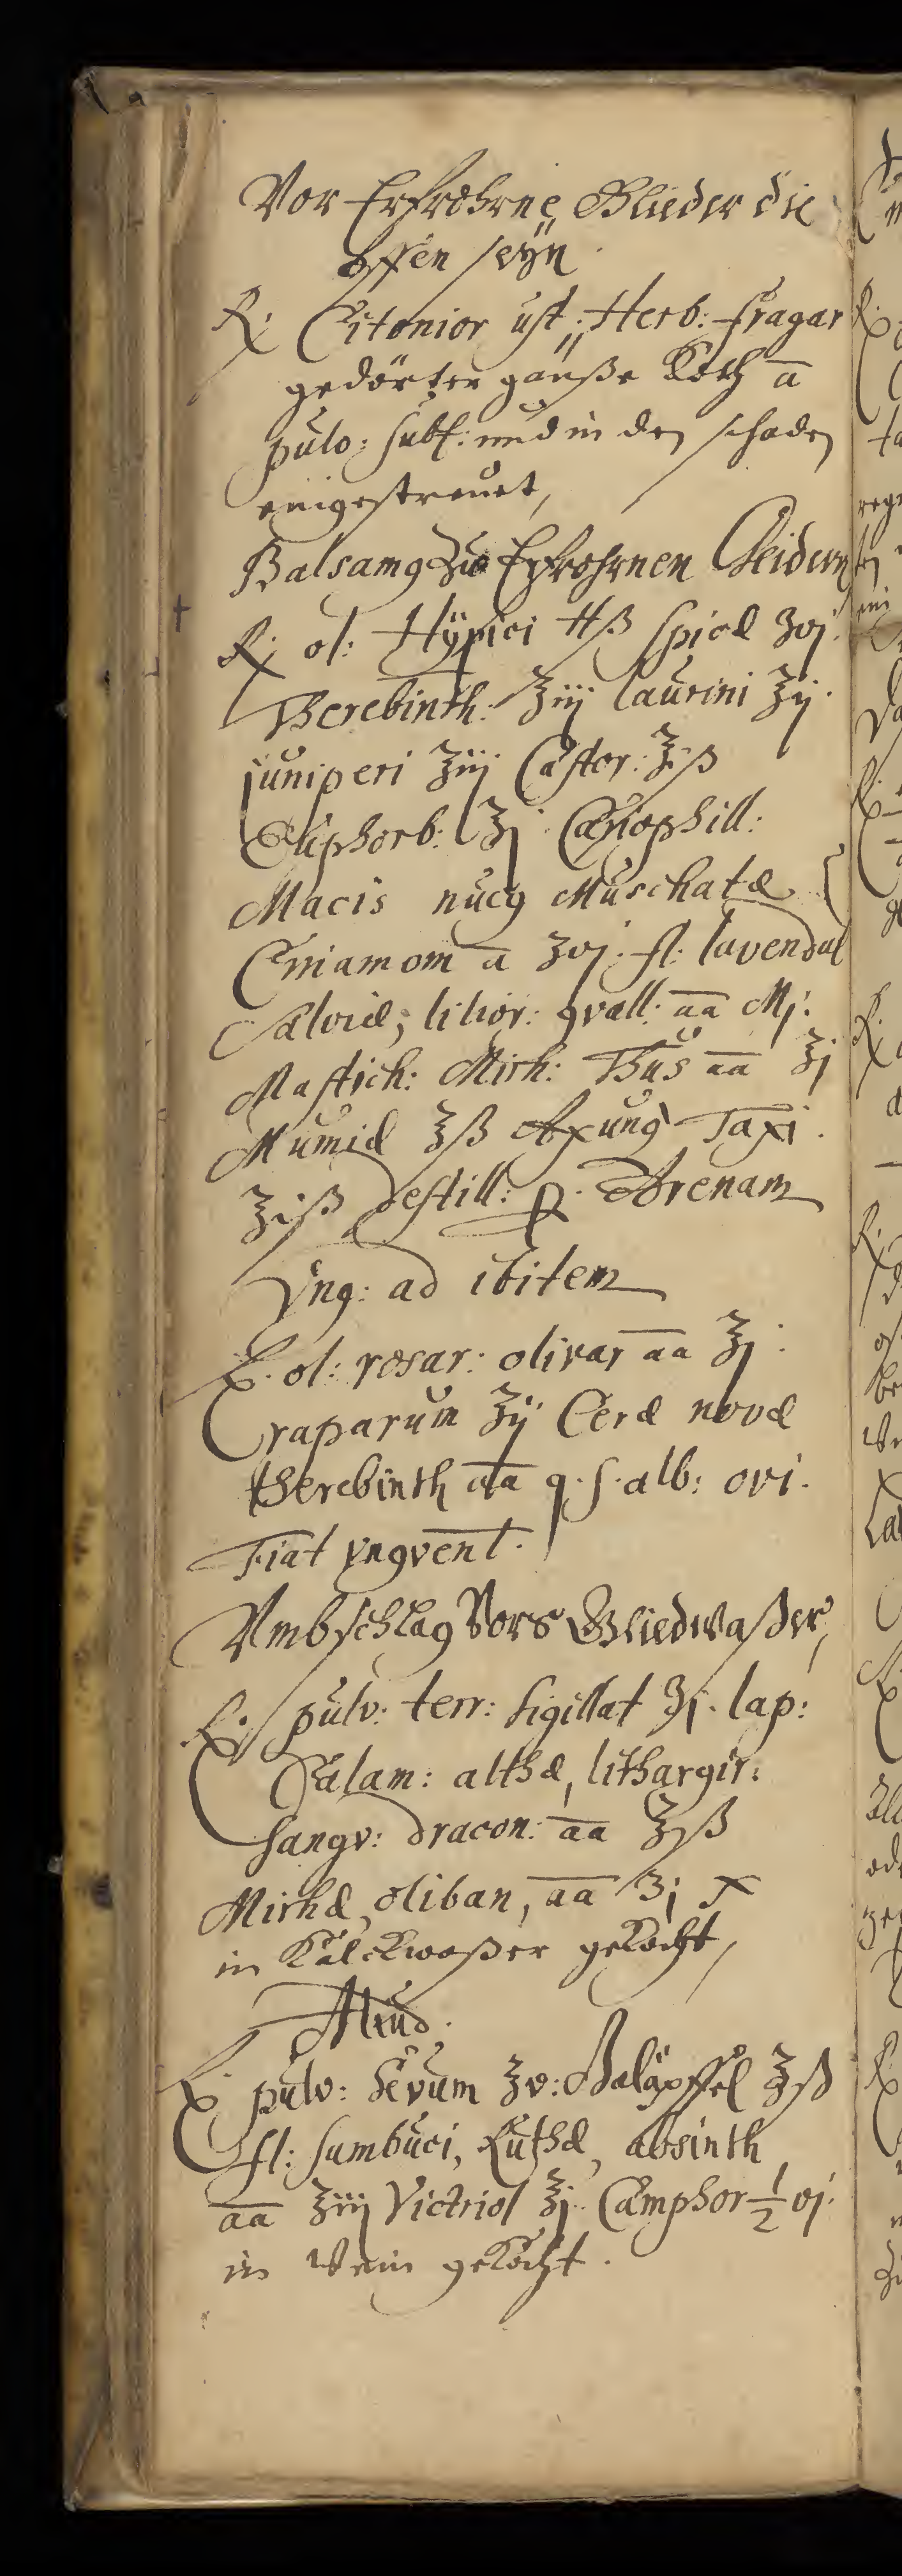 Vor Erfrohrne Glieder die
offen seÿn.
℞. Citonior ust: Herb: fragar
gedörter gänße Koth a̅
pulv: subt: und in den schaden
eingestreuet,
Balsamꝰ zu Erfrohrnen Gliedern
℞. ol: Hÿpici ℔ß Spicæ ʒvj.
Therebinth: ℥iij laurini ℥ij.
juniperi ℥iij Castor: ℥iß
Euphorb: ℥j Cariophill:
Macis nucꝰ Muschatæ
Cinamom a̅ ʒvj. fl: lavendul
Salviæ, lilior: ꝯvall: a̅a̅ Mj.
Mastich: Mirh: Thus a̅a̅ ℥j
Mumiæ ℥ß Axung Taxi.
℥iß destill: ꝑ. Arenam
Vng: ad ibitem
℞. ol: rosar: olivar a̅a̅ ℥j.
raparum ℥ij Ceræ novæ
therebinth a̅a̅ q. s. alb: ovi.
Fiat vngvent.
Vmbschlag Vors Gliedwaßer,
℞. pulv: terr: sigillat ℥j. lap:
Calam: althæ, lithargir:
Sangv: dracon: a̅a̅ ℥ß
Mirhæ, oliban, a̅a̅ ʒj
in Kalckwaßer gekocht,
Aliud.
℞. pulv: Galäpffel ℥ß
fl: sambuci, Ruthæ, absinth
a̅a̅ ℥iij Victriol ℥j. Camphor ½ vj.
in Wein gekocht.